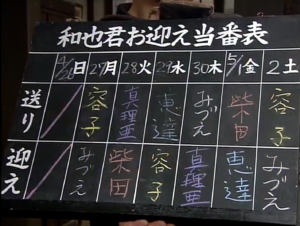 和也君お迎え当番表
4/26日 27月 28火 29水 30木 5/1金 2土
送り 容子 真理亜 恵達 みづえ 柴田 容子
迎え みづえ 柴田 容子 真理亜 恵達 みづえ